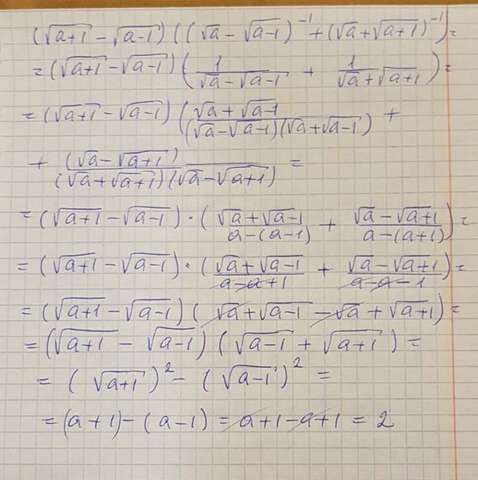 (√(a+1) − √(a−1)) ((√a − √(a−1))⁻¹ + (√a + √(a+1))⁻¹) =
= (√(a+1) − √(a−1)) (1/(√a − √(a−1)) + 1/(√a + √(a+1))) =
= (√(a+1) − √(a−1)) ((√a + √(a−1))/((√a − √(a−1))(√a + √(a−1))) +
+ (√a − √(a+1))/((√a + √(a+1))(√a − √(a+1))) =
= (√(a+1) − √(a−1)) · ((√a + √(a−1))/(a−(a−1)) + (√a − √(a+1))/(a−(a+1))) =
= (√(a+1) − √(a−1)) · ((√a + √(a−1))/(a−a+1) + (√a − √(a+1))/(a−a−1)) =
= (√(a+1) − √(a−1)) (√a + √(a−1) − √a + √(a+1)) =
= (√(a+1) − √(a−1)) (√(a−1) + √(a+1)) =
= (√(a+1))² − (√(a−1))² =
= (a+1) − (a−1) = a+1−a+1 = 2